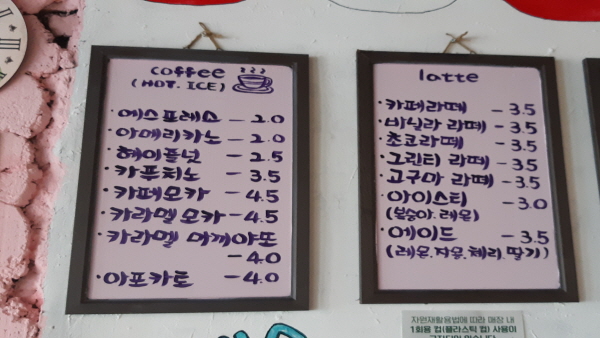 coffee
(HOT. ICE)
·에스프레스 - 2.0
·아메리카노 - 2.0
·헤이즐넛 - 2.5
·카푸치노 - 3.5
·카페모카 - 4.5
·카라멜모카 - 4.5
·카라멜 마끼야또
- 4.0
·아포카토 - 4.0
latte
·카페라떼 - 3.5
·바닐라 라떼 - 3.5
·초코라떼 - 3.5
·그린티 라떼 - 3.5
·고구마 라떼 - 3.5
·아이스티 - 3.0
(복숭아. 레몬)
·에이드 - 3.5
(레몬.자몽.체리.딸기)
자원재활용법에 따라 매장 내
1회용 컵(플라스틱 컵) 사용이
금지되어 있습니다